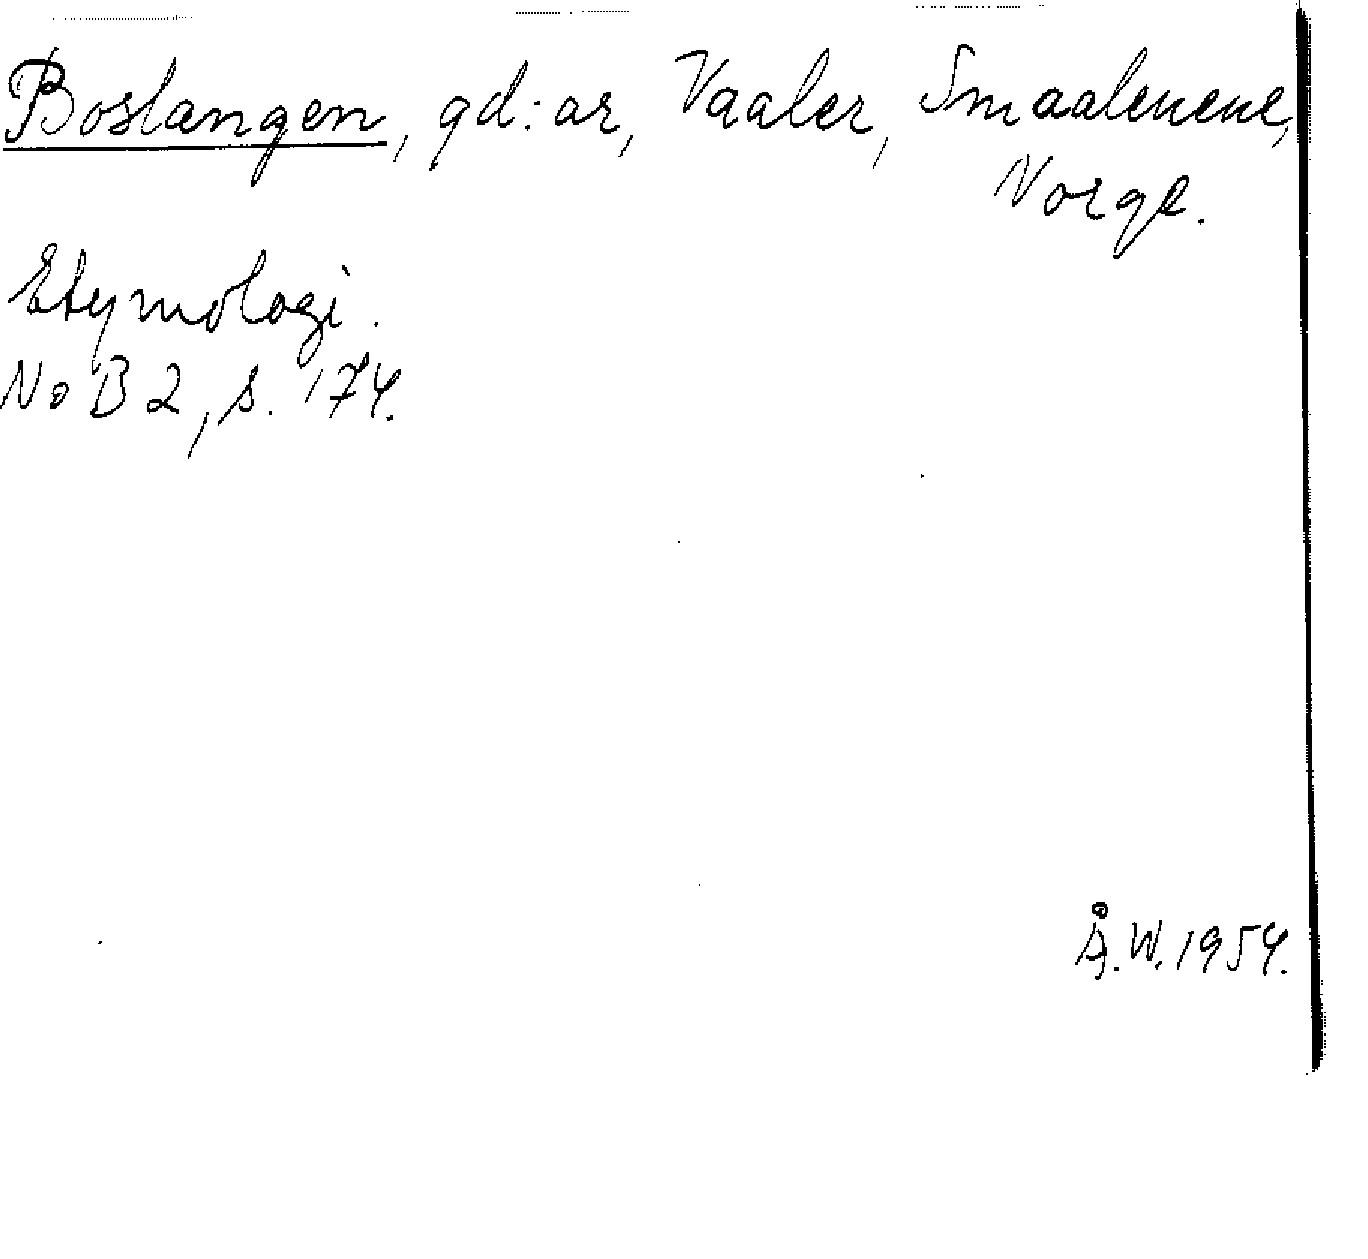 Boslangen, gd:ar, Vaaler, Smaalenene,
Norge.
Etymologi.
NoB 2, s. 174.
Å.W. 1954.